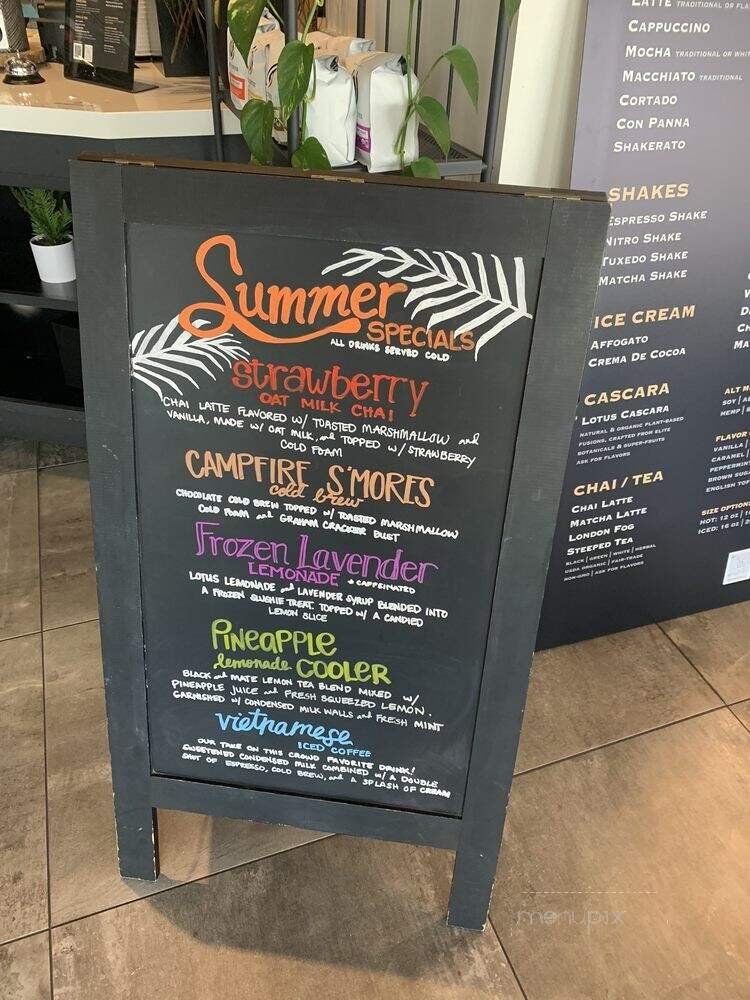 Summer
SPECIALS
ALL DRINKS SERVED COLD
Strawberry
OAT MILK CHAI
CHAI LATTE FLAVORED W/ TOASTED MARSHMALLOW and
VANILLA, MADE W/ OAT MILK, and TOPPED W/ STRAWBERRY
COLD FOAM
CAMPFIRE S'MORES
cold brew
CHOCOLATE COLD BREW TOPPED W/ TOASTED MARSHMALLOW
COLD FOAM and GRAHAM CRACKER DUST
Frozen Lavender
LEMONADE + CAFFEINATED
LOTUS LEMONADE and LAVENDER SYRUP BLENDED INTO
A FROZEN SLUSHIE TREAT, TOPPED W/ A CANDIED
LEMON SLICE
PINEAPPLE
lemonade COOLER
BLACK and MATE LEMON TEA BLEND MIXED W/
PINEAPPLE JUICE and FRESH SQUEEZED LEMON.
GARNISHED W/ CONDENSED MILK WALLS and FRESH MINT
vietnamese
ICED COFFEE
OUR TAKE ON THIS CROWD FAVORITE DRINK!
SWEETENED CONDENSED MILK COMBINED W/ A DOUBLE
SHOT OF ESPRESSO, COLD BREW, and A SPLASH OF CREAM
LATTE TRADITIONAL OR FLA
CAPPUCCINO
MOCHA TRADITIONAL OR WHIT
MACCHIATO TRADITIONAL
CORTADO
CON PANNA
SHAKERATO
SHAKES
ESPRESSO SHAKE
NITRO SHAKE
TUXEDO SHAKE
MATCHA SHAKE
ICE CREAM
AFFOGATO
CREMA DE COCOA
CASCARA
LOTUS CASCARA
NATURAL & ORGANIC PLANT-BASED
FUSIONS, CRAFTED FROM ELITE
BOTANICALS & SUPER-FRUITS
ASK FOR FLAVORS
CHAI / TEA
CHAI LATTE
MATCHA LATTE
LONDON FOG
STEEPED TEA
BLACK | GREEN | WHITE | HERBAL
USDA ORGANIC | FAIR-TRADE
NON-GMO | ASK FOR FLAVORS
ALT M
SOY | AL
HEMP |
FLAVOR
VANILLA |
CARAMEL |
PEPPERMINT
BROWN SUGA
ENGLISH TOF
SIZE OPTIONS
HOT: 12 oz | 1
ICED: 16 oz | 2
menupix